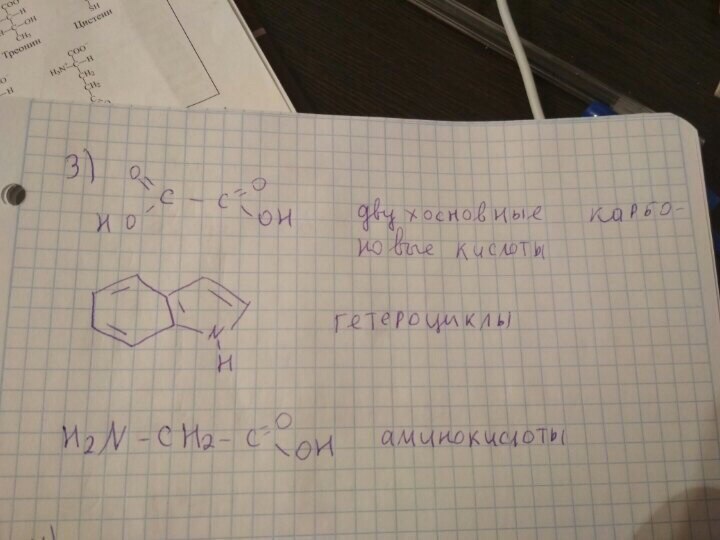 COO⁻
SH
Цистеин
H
OH
CH₃
Треонин
COO⁻
H₃N⁺ C H
CH₂
CH₂
3)
O O
C - C
HO OH
двухосновные карбо-
новые кислоты
N
H
гетероциклы
H₂N - CH₂ - C O
OH
аминокислоты